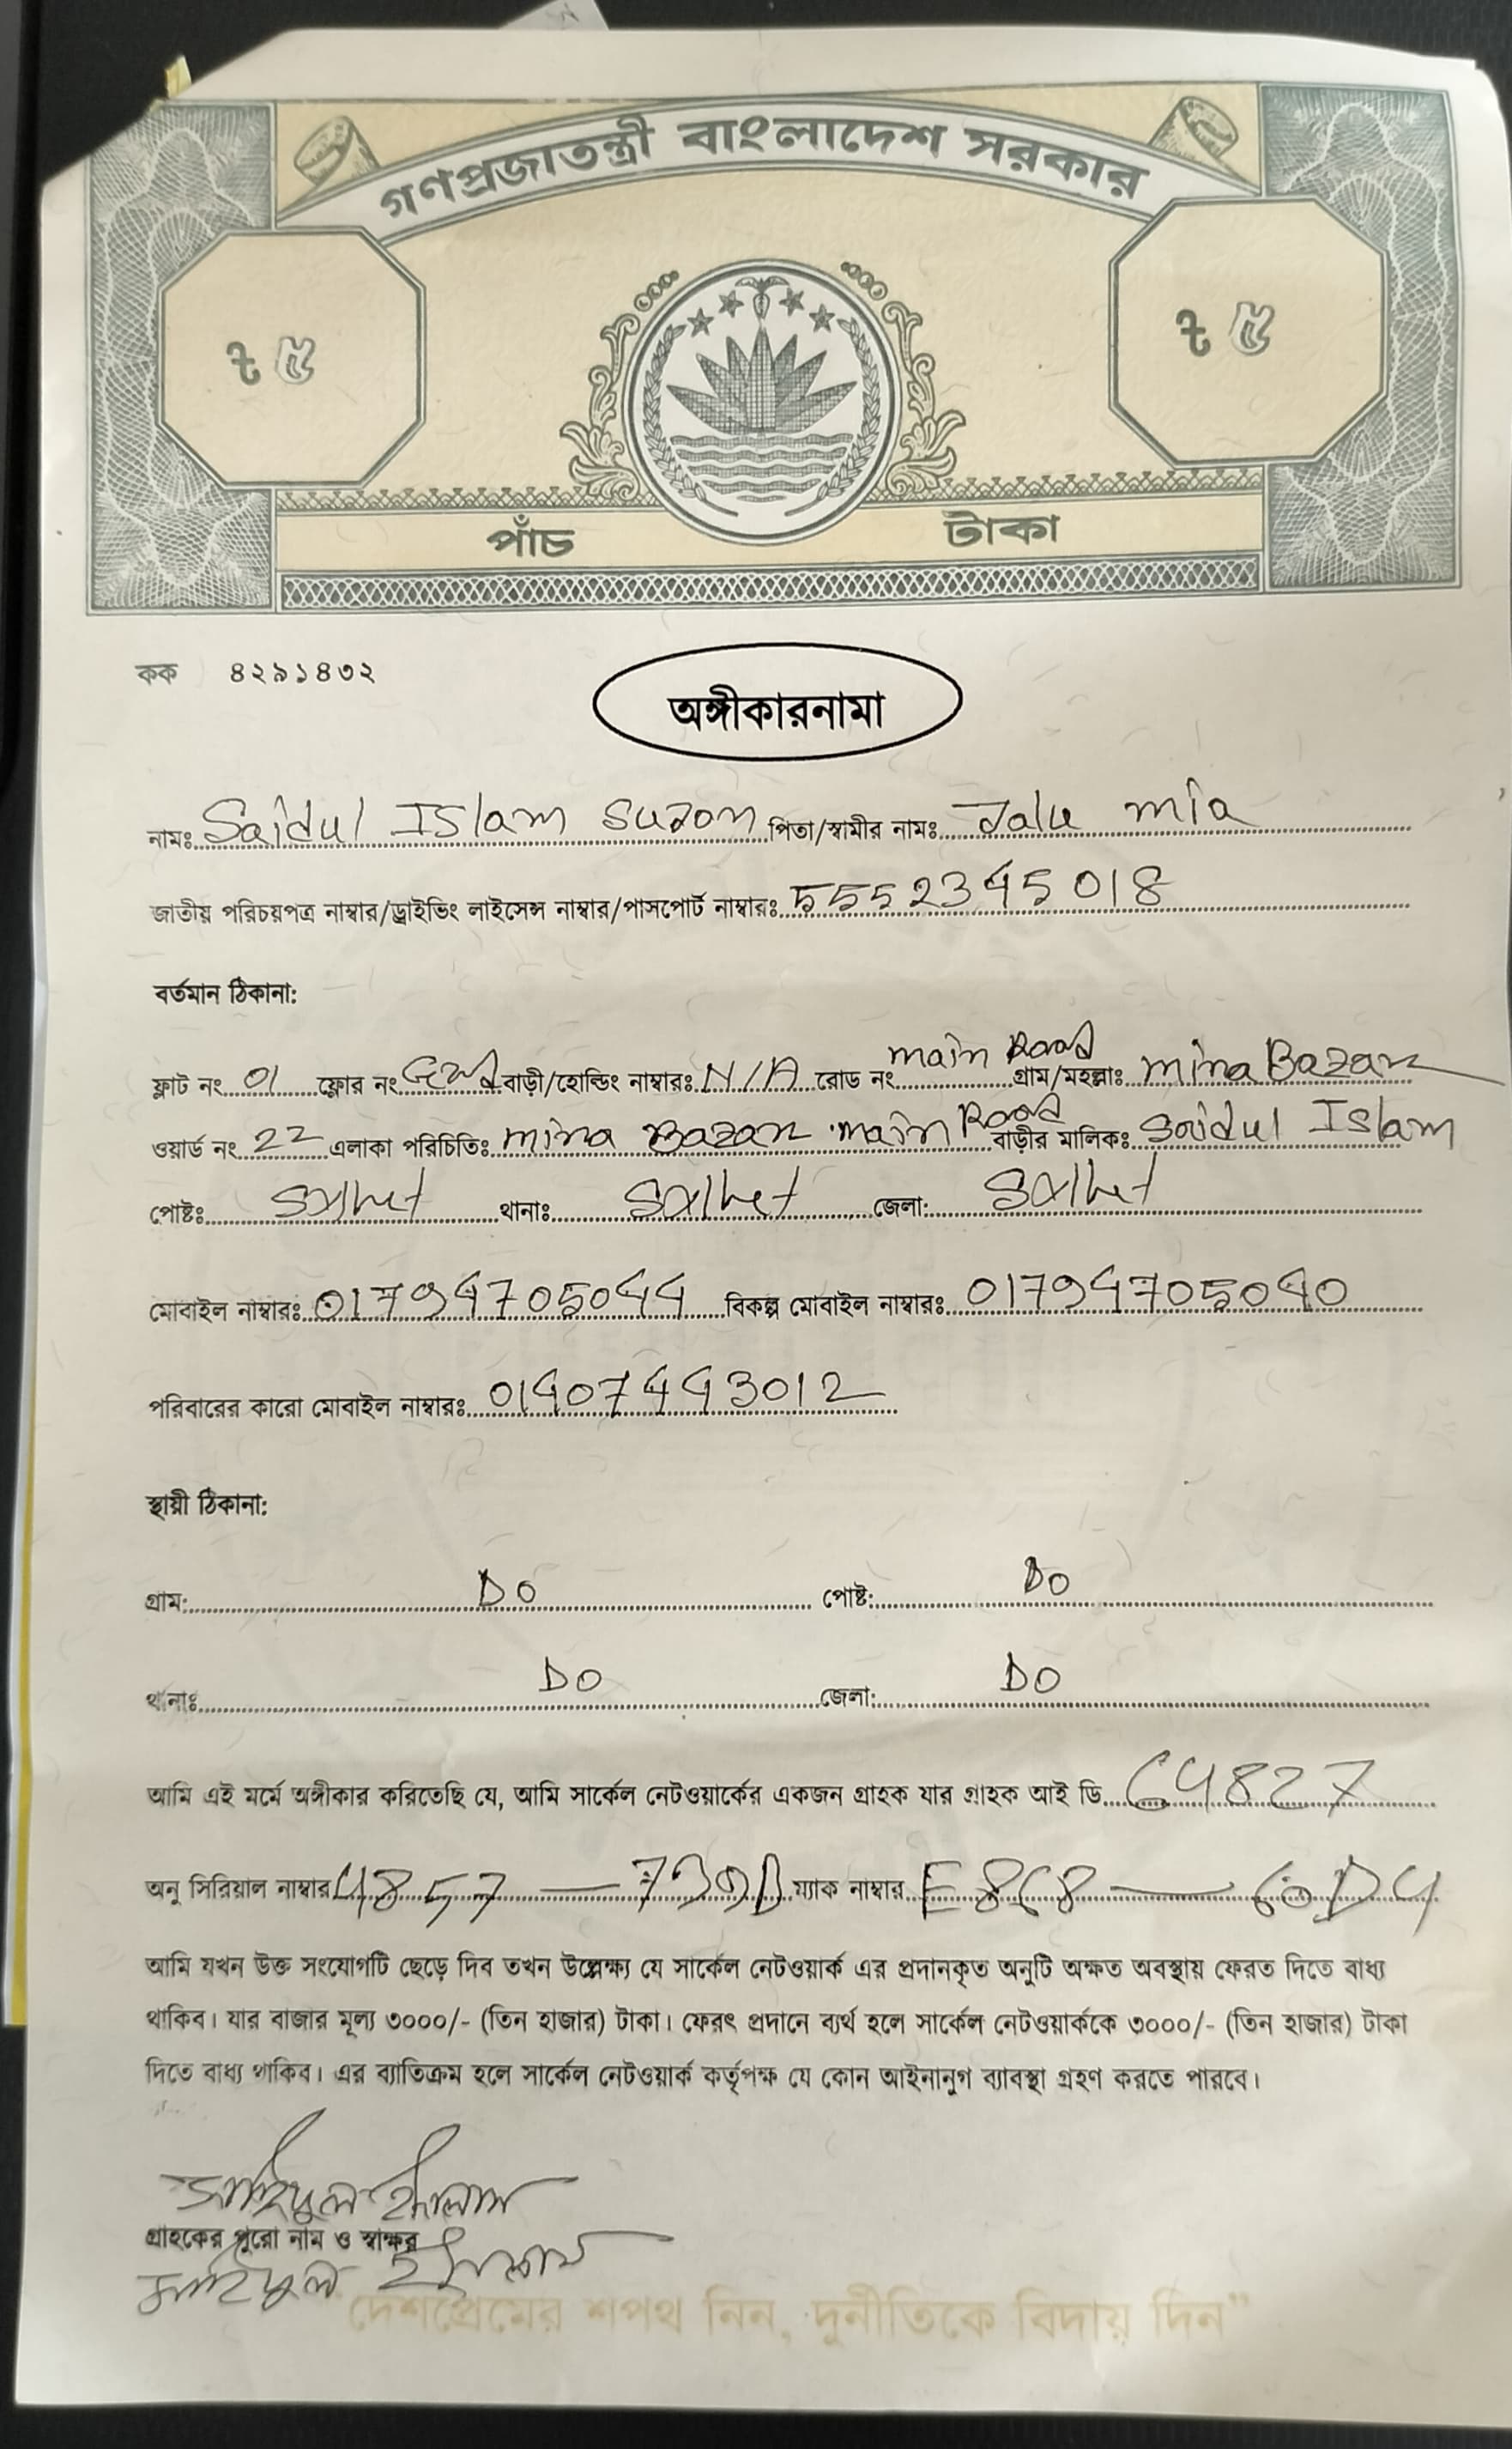 গণপ্রজাতন্ত্রী বাংলাদেশ সরকার
৳ ৫ ৳ ৫
পাঁচ টাকা
কক ৪২৯১৪৩২
অঙ্গীকারনামা
নামঃ Saidul Islam suzon পিতা/স্বামীর নামঃ Jalu mia
জাতীয় পরিচয়পত্র নাম্বার/ড্রাইভিং লাইসেন্স নাম্বার/পাসপোর্ট নাম্বারঃ 5552345018
বর্তমান ঠিকানা:
ফ্লাট নং 01 ফ্লোর নং বাড়ী/হোল্ডিং নাম্বারঃ N/A রোড নং main Road গ্রাম/মহল্লাঃ mina Bazar
ওয়ার্ড নং 22 এলাকা পরিচিতিঃ mina Bazar main Road বাড়ীর মালিকঃ Saidul Islam
পোষ্টঃ Sylhet থানাঃ Sylhet জেলা: Sylhet
মোবাইল নাম্বারঃ 01794705044 বিকল্প মোবাইল নাম্বারঃ 01794705040
পরিবারের কারো মোবাইল নাম্বারঃ 01407443012
স্থায়ী ঠিকানা:
গ্রাম: DO পোষ্ট: DO
থানাঃ DO জেলা: DO
আমি এই মর্মে অঙ্গীকার করিতেছি যে, আমি সার্কেল নেটওয়ার্কের একজন গ্রাহক যার গ্রাহক আই ডি C4827
অনু সিরিয়াল নাম্বার 4857 — 7399D ম্যাক নাম্বার E8C8 — 60D4
আমি যখন উক্ত সংযোগটি ছেড়ে দিব তখন উল্লেক্ষ্য যে সার্কেল নেটওয়ার্ক এর প্রদানকৃত অনুটি অক্ষত অবস্থায় ফেরত দিতে বাধ্য
থাকিব। যার বাজার মূল্য ৩০০০/- (তিন হাজার) টাকা। ফেরৎ প্রদানে ব্যর্থ হলে সার্কেল নেটওয়ার্ককে ৩০০০/- (তিন হাজার) টাকা
দিতে বাধ্য থাকিব। এর ব্যাতিক্রম হলে সার্কেল নেটওয়ার্ক কর্তৃপক্ষ যে কোন আইনানুগ ব্যাবস্থা গ্রহণ করতে পারবে।
সাইদুল ইসলাম
গ্রাহকের পুরো নাম ও স্বাক্ষর
সাইদুল ইসলাম
"দেশপ্রেমের শপথ নিন, দুর্নীতিকে বিদায় দিন"